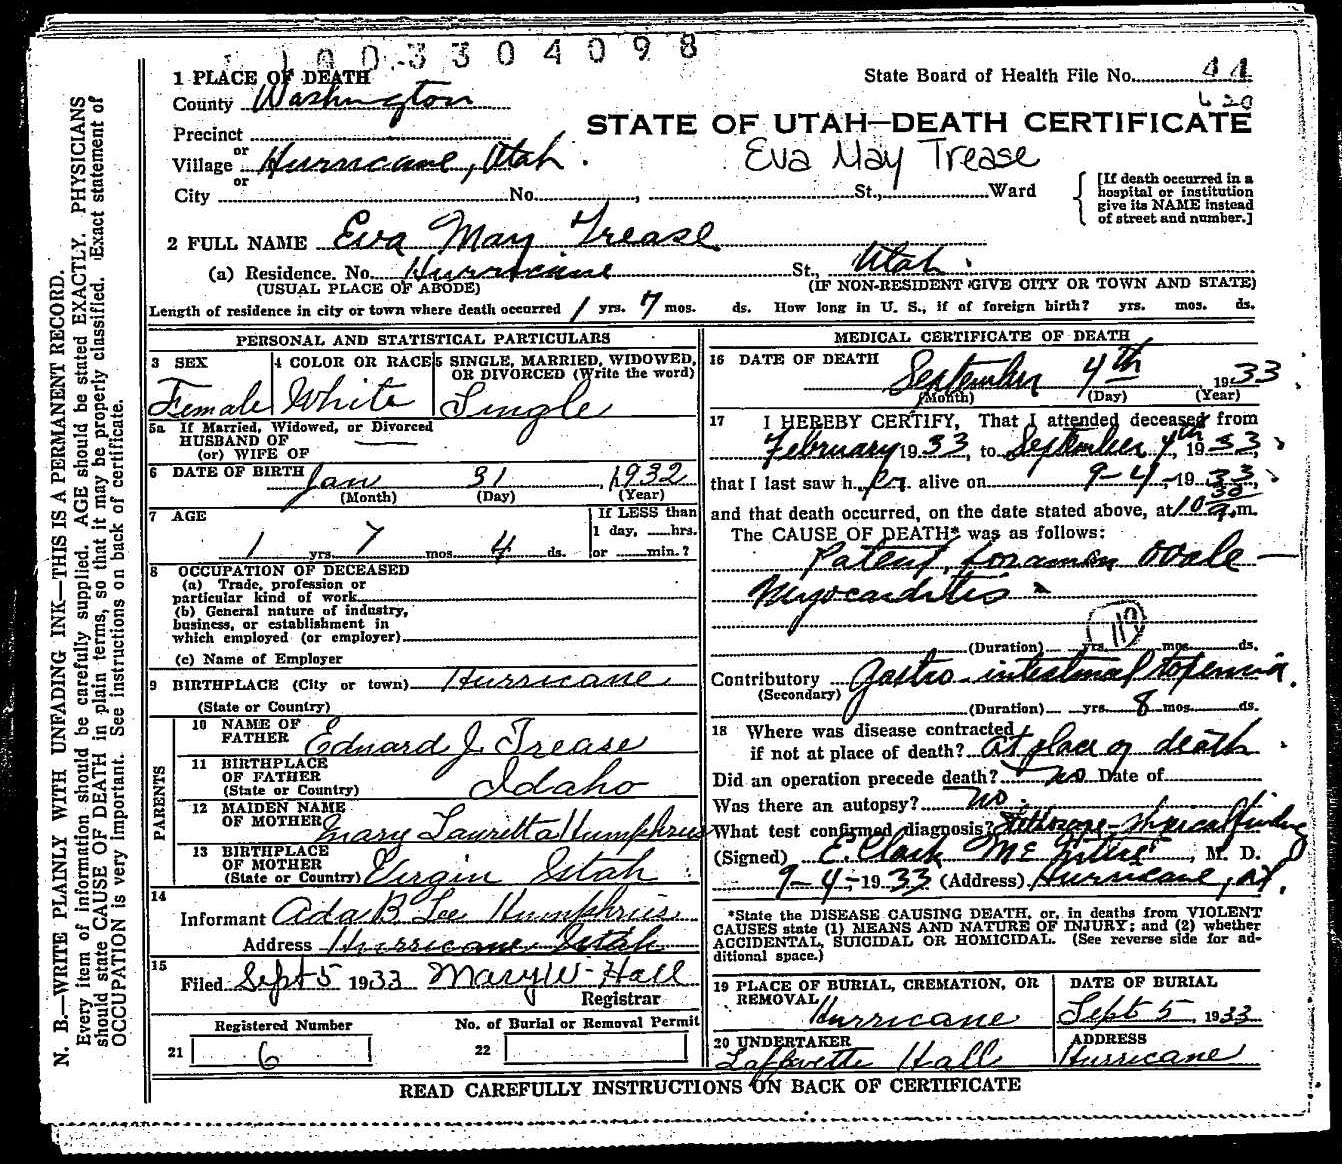 1003304098
1 PLACE OF DEATH
State Board of Health File No. 44
County Washington
620
Precinct
STATE OF UTAH—DEATH CERTIFICATE
or
Village Hurricane, Utah.
Eva May Trease
or
City No. , St., Ward
[If death occurred in a
hospital or institution
give its NAME instead
of street and number.]
2 FULL NAME Eva May Trease
(a) Residence. No. Hurricane St., Utah.
(USUAL PLACE OF ABODE) (IF NON-RESIDENT GIVE CITY OR TOWN AND STATE)
Length of residence in city or town where death occurred 1 yrs. 7 mos. ds. How long in U. S., if of foreign birth? yrs. mos. ds.
PERSONAL AND STATISTICAL PARTICULARS
3 SEX 4 COLOR OR RACE 5 SINGLE, MARRIED, WIDOWED,
OR DIVORCED (Write the word)
Female White Single
5a If Married, Widowed, or Divorced
HUSBAND OF
(or) WIFE OF
6 DATE OF BIRTH Jan 31, 1932
(Month) (Day) (Year)
7 AGE If LESS than
1 day, hrs.
1 yrs. 7 mos. 4 ds. or min.?
8 OCCUPATION OF DECEASED
(a) Trade, profession or
particular kind of work
(b) General nature of industry,
business, or establishment in
which employed (or employer)
(c) Name of Employer
9 BIRTHPLACE (City or town) Hurricane
(State or Country)
PARENTS
10 NAME OF
FATHER Edward J. Trease
11 BIRTHPLACE
OF FATHER
(State or Country) Idaho
12 MAIDEN NAME
OF MOTHER Mary Lauretta Humphries
13 BIRTHPLACE
OF MOTHER
(State or Country) Virgin Utah
14
Informant Ada B Lee Humphries
Address Hurricane Utah
15
Filed Sept 5 1933 Mary W. Hall
Registrar
Registered Number No. of Burial or Removal Permit
21 6 22
MEDICAL CERTIFICATE OF DEATH
16 DATE OF DEATH
September 4th, 1933
(Month) (Day) (Year)
17 I HEREBY CERTIFY, That I attended deceased from
February 1933, to September 4th, 1933,
that I last saw her alive on 9-4-1933,
and that death occurred, on the date stated above, at 10 30 a.m.
The CAUSE OF DEATH* was as follows:
Patent foramen ovale —
Myocarditis
(Duration) yrs. mos. ds.
Contributory Gastro-intestinal
(Secondary)
(Duration) yrs. 8 mos. ds.
18 Where was disease contracted
if not at place of death? At place of death.
Did an operation precede death? no Date of
Was there an autopsy? no.
What test confirmed diagnosis? Stethoscope-physical finding
(Signed) E. Clark , M. D.
9-4-1933 (Address) Hurricane, Ut.
*State the DISEASE CAUSING DEATH, or, in deaths from VIOLENT
CAUSES state (1) MEANS AND NATURE OF INJURY; and (2) whether
ACCIDENTAL, SUICIDAL OR HOMICIDAL. (See reverse side for ad-
ditional space.)
19 PLACE OF BURIAL, CREMATION, OR
REMOVAL
Hurricane
DATE OF BURIAL
Sept 5, 1933
20 UNDERTAKER
Laffayette Hall
ADDRESS
Hurricane
READ CAREFULLY INSTRUCTIONS ON BACK OF CERTIFICATE
N. B.—WRITE PLAINLY WITH UNFADING INK—THIS IS A PERMANENT RECORD.
Every item of information should be carefully supplied. AGE should be stated EXACTLY. PHYSICIANS
should state CAUSE OF DEATH in plain terms, so that it may be properly classified. Exact statement of
OCCUPATION is very important. See instructions on back of certificate.